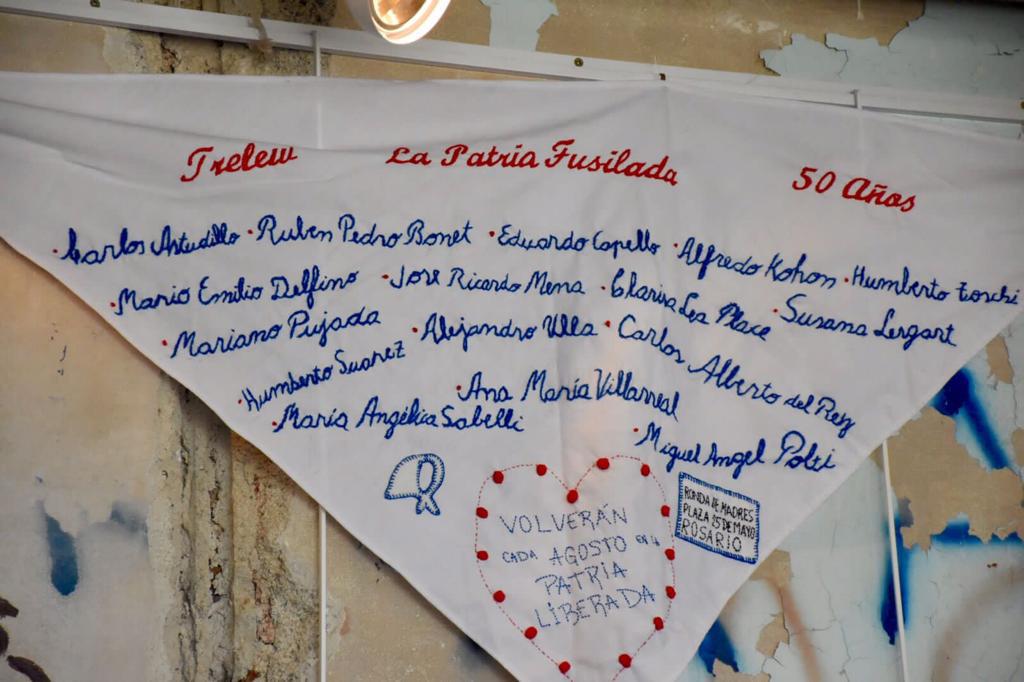 Trelew La Patria Fusilada 50 Años
·Carlos Astudillo ·Ruben Pedro Bonet ·Eduardo Capello ·Alfredo Kohon ·Humberto Toschi
·Mario Emilio Delfino ·Jose Ricardo Mena ·Clarisa Lea Place ·Susana Lesgart
·Mariano Pujada ·Alejandro Ulla ·Carlos Alberto del Rey
·Humberto Suarez ·Ana María Villarreal
·María Angélica Sabelli ·Miguel Angel Polti
VOLVERÁN
CADA AGOSTO EN LA
PATRIA
LIBERADA
RONDA DE MADRES
PLAZA 25 DE MAYO
ROSARIO